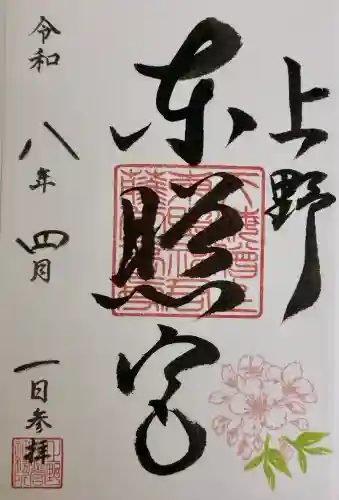 上野
東照宮
令和八年四月一日参拝